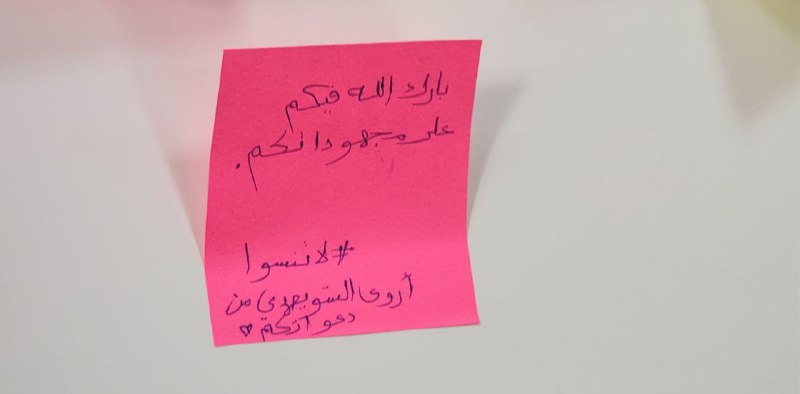 بارك الله فيكم
على مجهوداتكم.
#لا تنسوا
أروى الشويهدي من
دعواتكم ♥